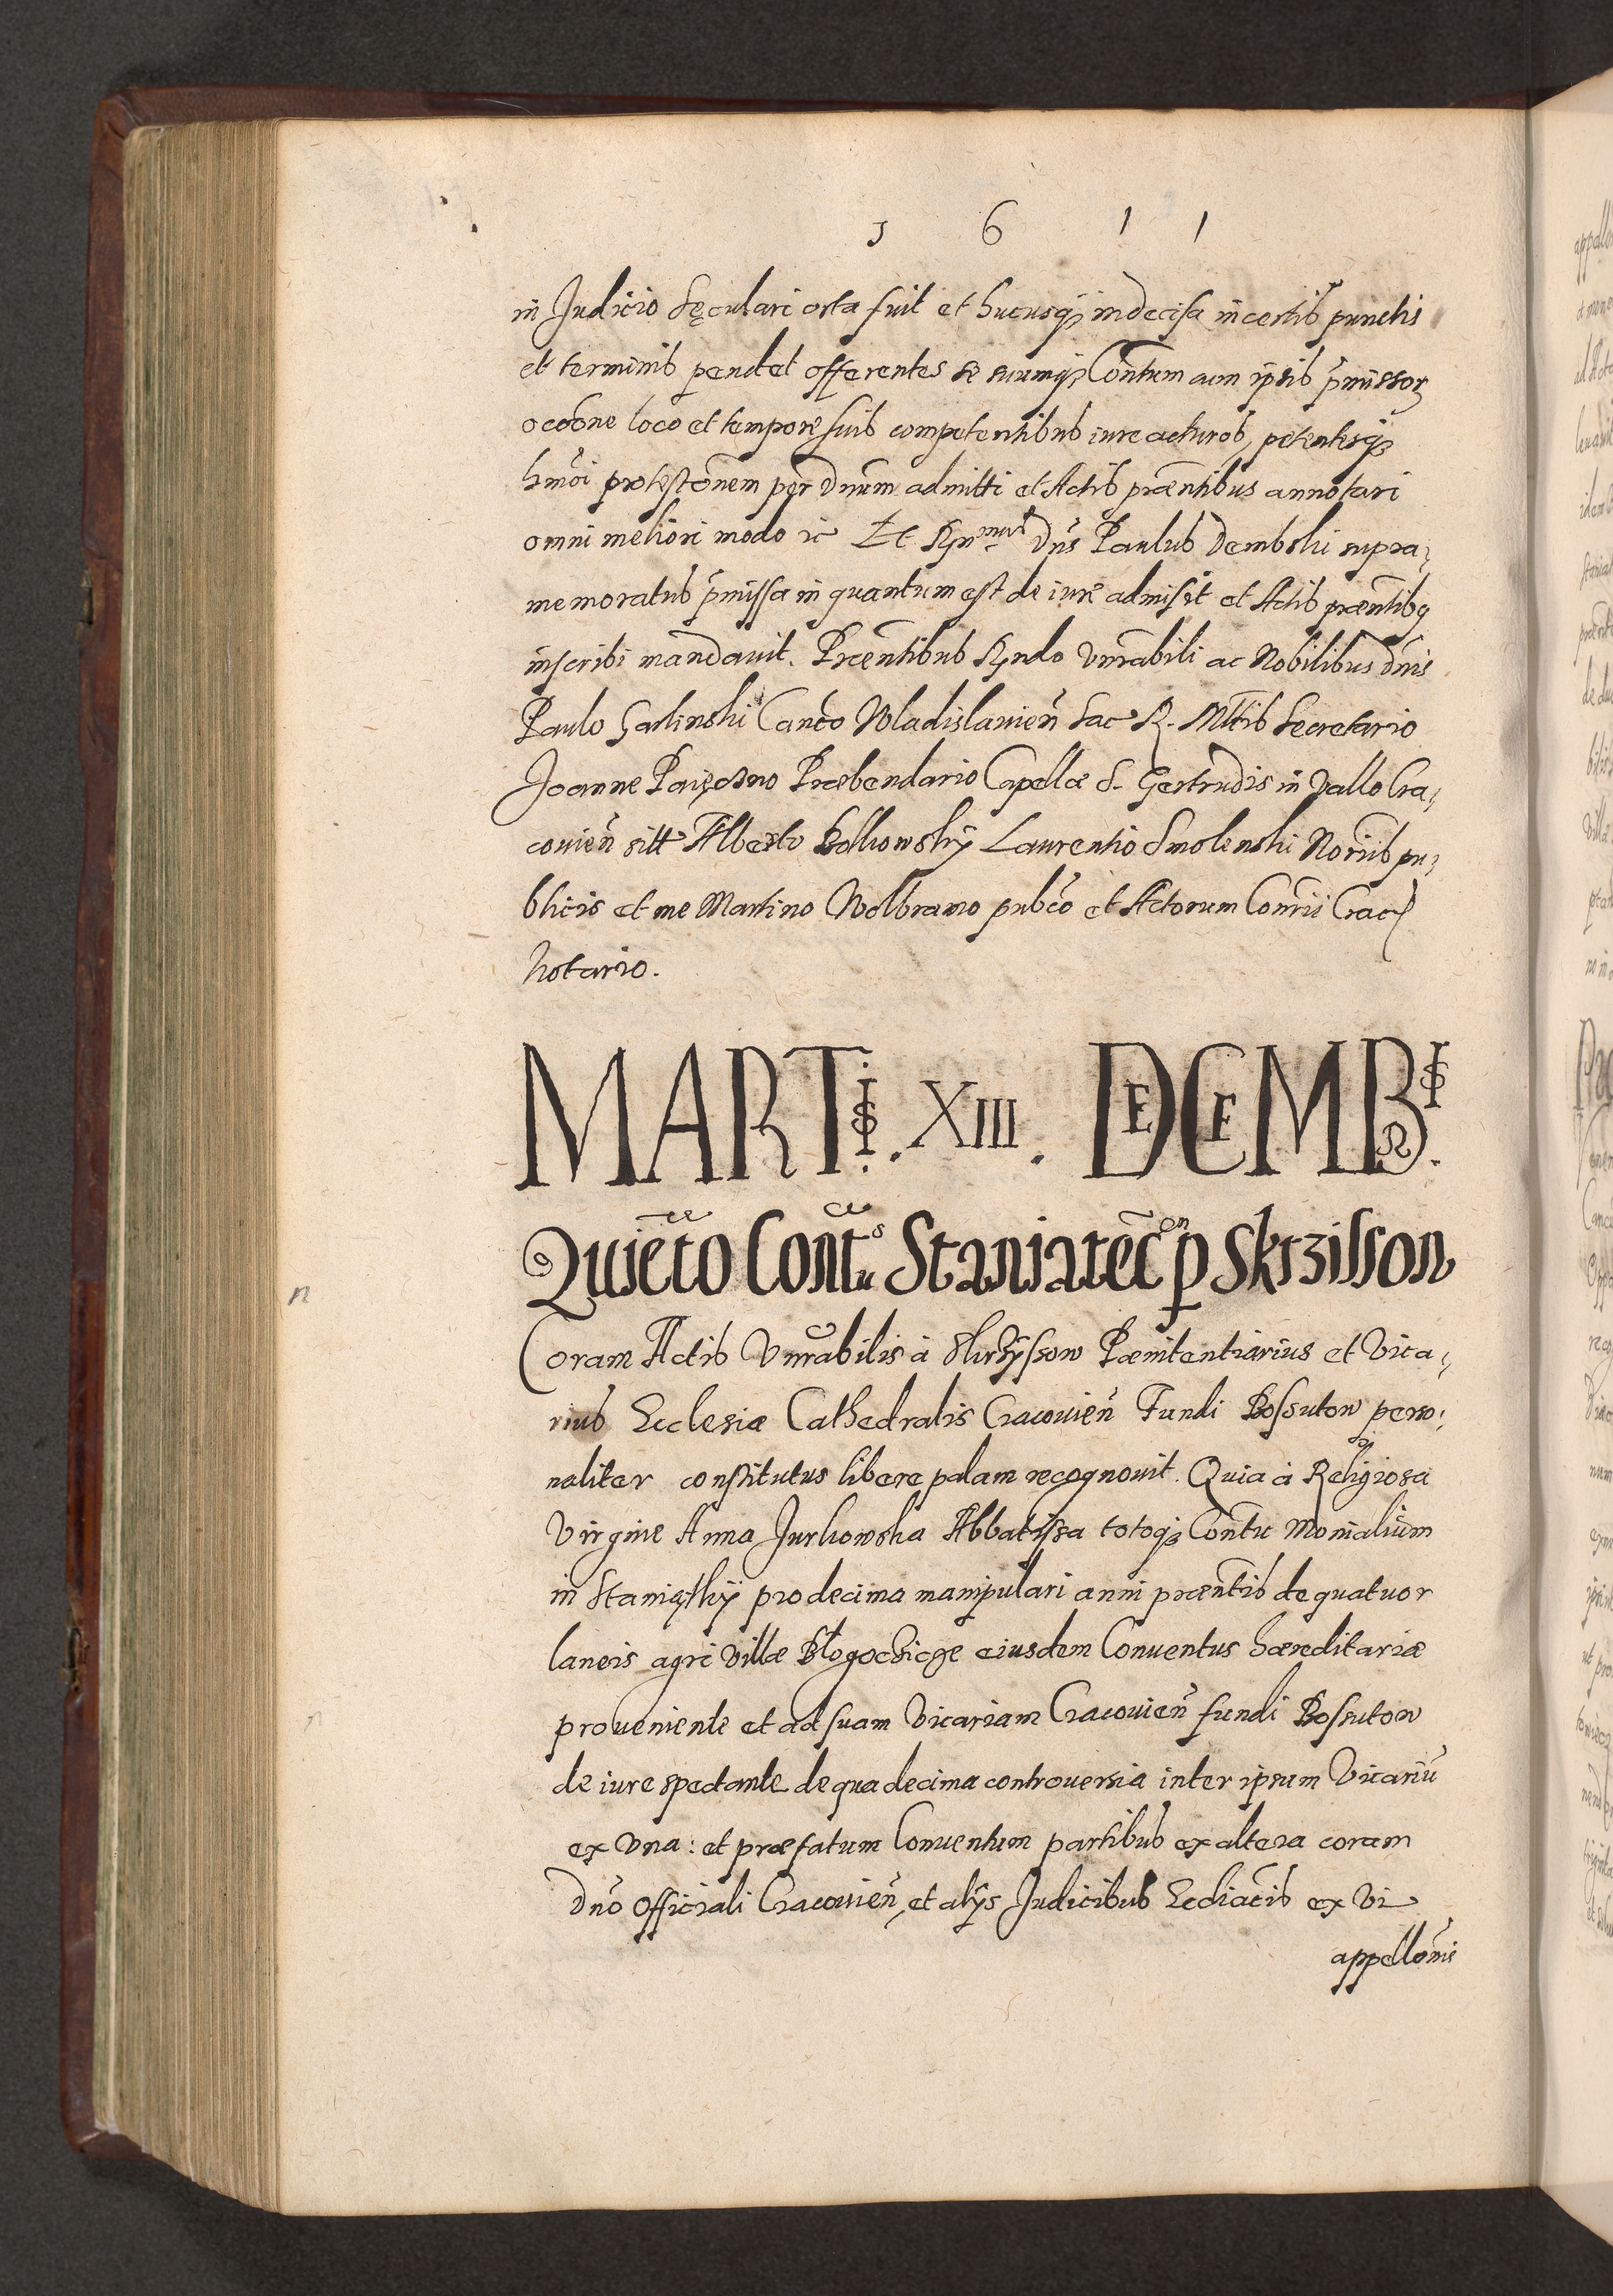 1 6 1 1
in Judicio sęculari orta fuit et hucusq; indecisa in certis punctis
et terminis pendet offerentes se suumq; Con̄tum cum ipsis p̄missor
occōne loco et tempore suis competentibus iure acturos, petentesq;
hmōi protestōnem per Dnum admitti et Actis præntibus annotari
omni meliori modo ic Et Rndmus Dns Paulus Dembski supra,
memoratus p̄missa in quantum est de iure admisit et Actis præntibq
inscribi mandauit. Præntibus Rndo Vnrabili ac Nobilibus dnis
Paulo Garlinski Canco Wladislauien̄ Sac R. Mttis Secretario
Joanne Præbendario Capellæ S. Gertrudis in Vallo Cra,
couien̄ sitt Alberto Laurentio Smolenski Noriis pu,
blicis et me Martino Wolbramo pubco et Actorum Con̄rii Crac
Notario.
MARTIS. XIII. DECEMBRIS.
Quietō Cont̄us Staniatēcen p Skrzisson
Coram Actis Vnrabilis à Skrzyssow Pænitentiarius et Vica,
rius Ecclesiæ Cathedralis Cracouien̄ Fundi Bossutow perso,
naliter constitutus libere palam recognouit. Quia à Religiosa
Virgine Anna Jurkowska Abbatissa totoq; Con̄tu Monialium
in Staniątky pro decima manipulari anni præntis de quatuor
laneis agri villæ Błogocicze eiusdem Conuentus hæreditariæ
proueniente et ad suam Vicariam Cracouien̄ fundi Bossutow
de iure spectante de qua decima controuersia inter ipsum Vicariū
ex Vna: et præfatum Conuentum partibus ex altera coram
Dno Officiali Cracouien̄, et alÿs Judicibus Ecclіаcis ex Vi
appellōnis
n